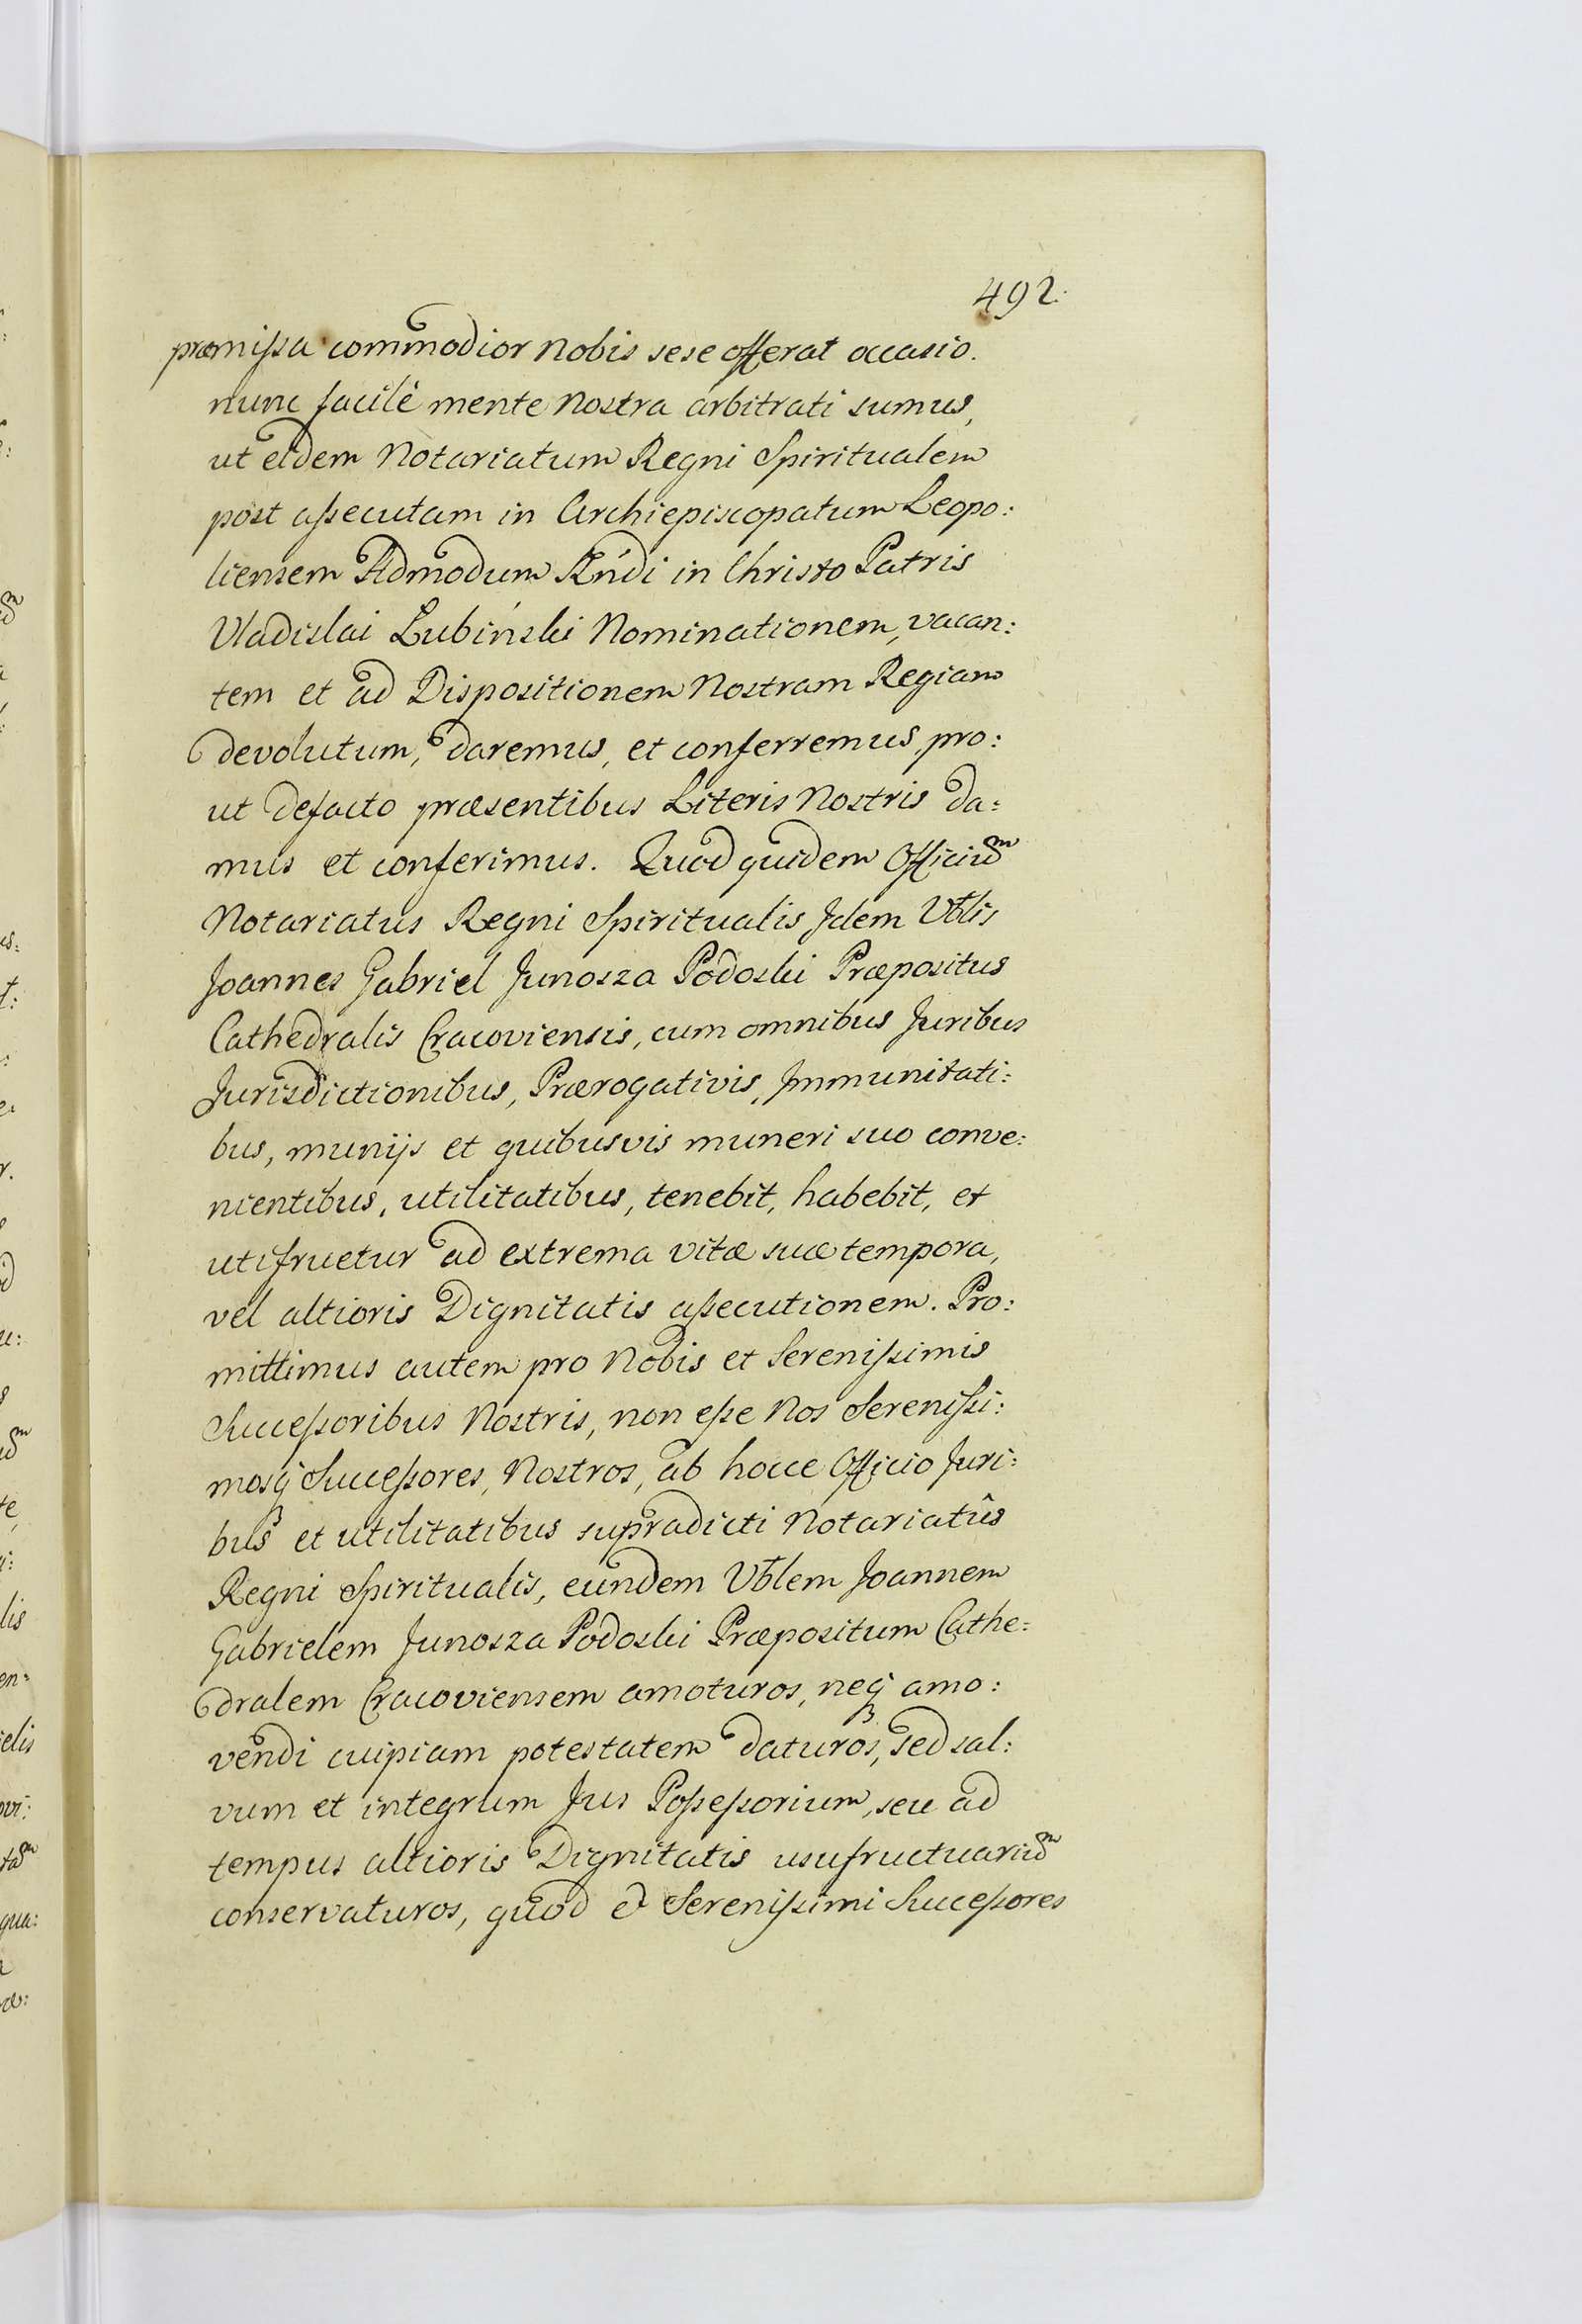 492.
præmissa commodior Nobis sese offerat occasio.
nunc facilè mente Nostra arbitrati sumus,
ut eidem Notariatum Regni Spiritualem
post assecutam in Archiepiscopatum Leopo:
liensem Admodum Rńdi in Christo Patris
Vladislai Łubiński Nominationem, vacan:
tem et ad Dispositionem Nostram Regiam
devolutum, daremus, et conferremus, pro:
ut defacto præsentibus Literis Nostris da:
mus et conferimus. Quod quidem Officiu͠m
Notariatus Regni Spiritualis Idem Vblis
Joannes Gabriel Junosza Podoski Præpositus
Cathedralis Cracoviensis, cum omnibus Juribus
Jurisdictionibus, Prærogativis, Immunitati:
bus, munijs et quibusvis muneri suo conve:
nientibus, utilitatibus, tenebit, habebit, et
utifruetur ad extrema vitæ suæ tempora,
vel altioris Dignitatis assecutionem. Pro:
mittimus autem pro Nobis et Serenissimis
Successoribus Nostris, non esse Nos Serenissi:
mosq́ Successores, Nostros, ab hocce Officio Juri:
bus et utilitatibus supradicti Notariatûs
Regni Spiritualis, eundem Vblem Joannem
Gabrielem Junosza Podoski Præpositum Cathe:
dralem Cracoviensem amoturos, neq́ amo:
vendi cuipiam potestatem daturos, sed sal:
vum et integrum Jus Possessorium, seu ad
tempus altioris Dignitatis usufructuariu͠m
conservaturos, quod & Serenissimi Successores